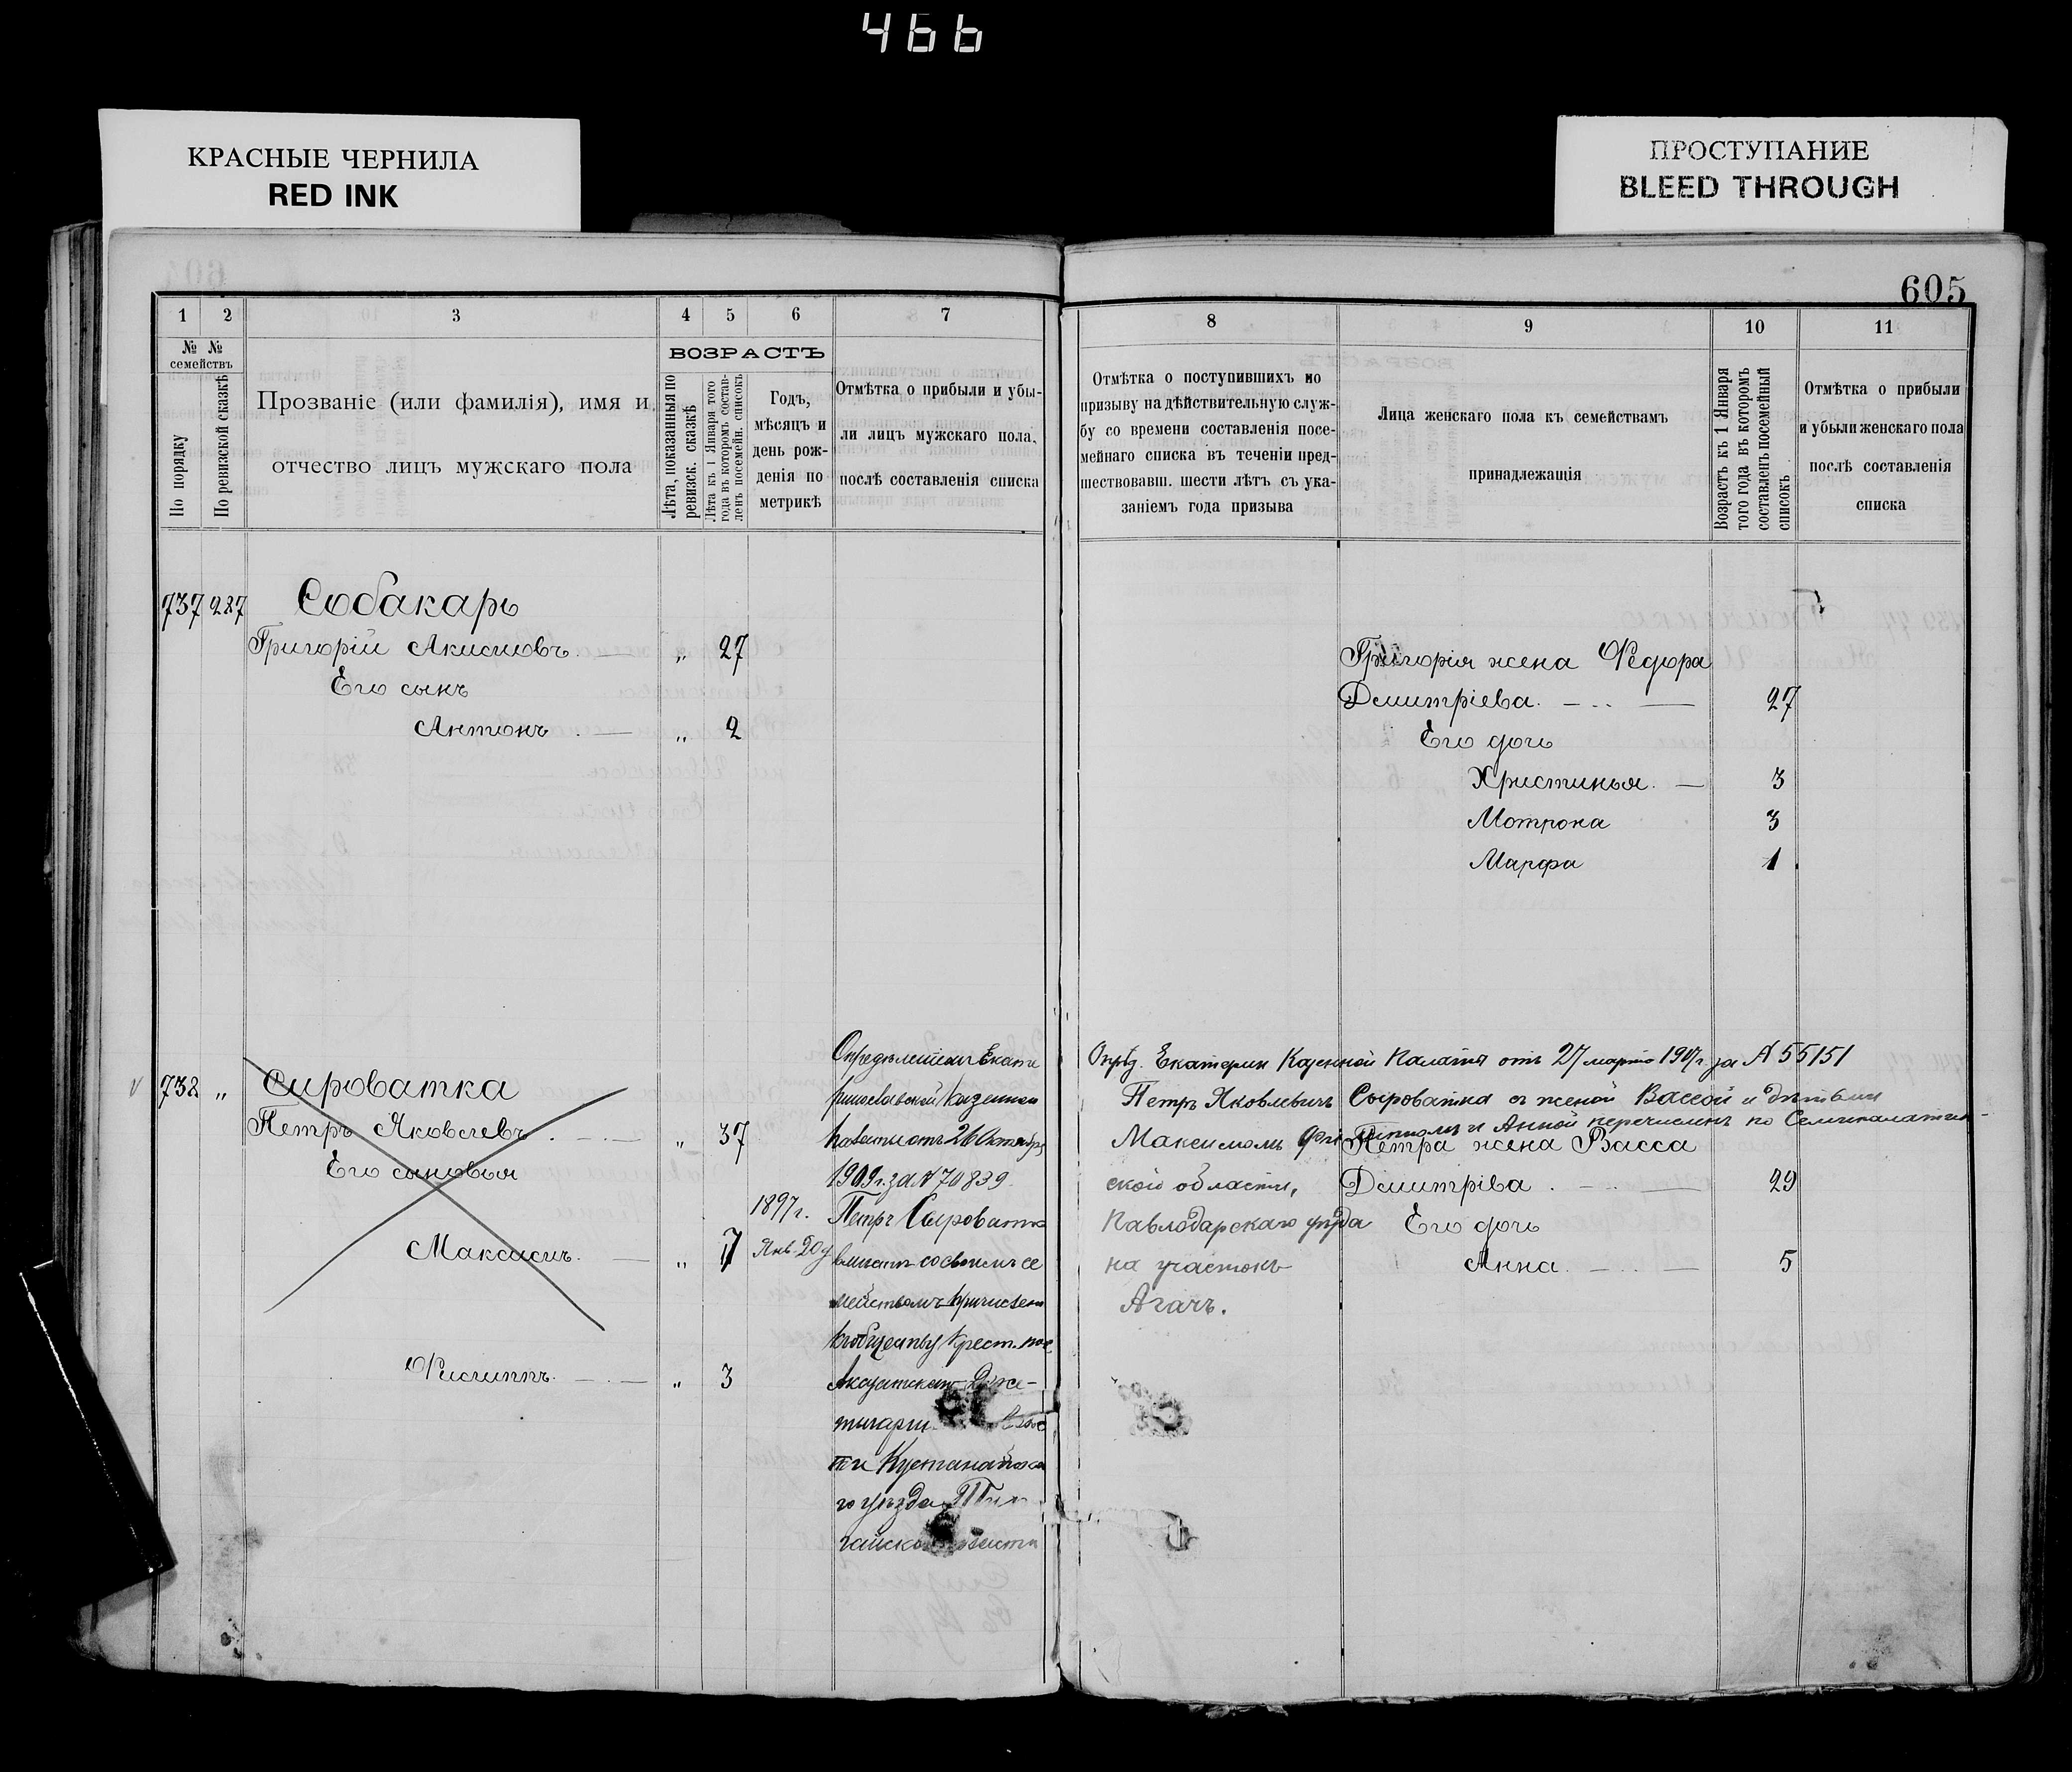 466
КРАСНЫЕ ЧЕРНИЛА
RED INK
ПРОСТУПАНИЕ
BLEED THROUGH
605
1 2 3 4 5 6 7
№ № семействъ
По порядку
По ревизской сказкѣ
Прозваніе (или фамилія), имя и
отчество лицъ мужскаго пола
ВОЗРАСТЪ
Лѣта, показанныя по
ревизск. сказкѣ
Лѣта къ 1 Января того
года въ которомъ состав-
ленъ посемейн. списокъ
Годъ,
мѣсяцъ и
день рож-
денія по
метрикѣ
Отмѣтка о прибыли и убы-
ли лицъ мужскаго пола,
послѣ составленія списка
737 287 Собакарь
Григорій Акимовъ. — „ 27
Его сынъ
Антонъ . — „ 2
738 „ Сироватка
Петръ Яковлевъ . — „ 37
Его сыновья
Максимъ. — „ 7
1897 г.
Янв. 20 д
Филиппъ. — „ 3
Опредѣленіем Екате
ринославской Казенной
палаты отъ 26 Октября
1909 г. за № 70839
Петръ Сыроватка
вмѣстѣ со своимъ се
мействомъ причислен
къ обществу крест. пос.
тыгарин
ти Кустанайска
го уѣзда
гайско
8 9 10 11
Отмѣтка о поступившихъ по
призыву на дѣйствительную служ-
бу со времени составленія посе-
мейнаго списка въ теченіи пред-
шествовавш. шести лѣтъ съ ука-
заніемъ года призыва
Лица женскаго пола къ семействамъ
принадлежащія
Возрастъ къ 1 Января
того года въ которомъ
составленъ посемейный
списокъ
Отмѣтка о прибыли
и убыли женскаго пола
послѣ составленія
списка
Григорія жена Федора
Дмитріева. — 27
Его дочь
Христинья. — 3
Мотрона 3
Марфа 1
Опрѣд. Екатерин Казенной Палаты отъ 27 марта 1907 г. за № 55151
Петръ Яковлевичъ Сыроватка съ женой Вассой и дѣтьми
Максимомъ Филиппомъ и Анной перечисленъ по Семипалатин-
ской области,
Павлодарскаго уѣзда
на участокъ
Агачъ.
Петра жена Васса
Дмитріва . — 29
Его дочь
Анна. — 5